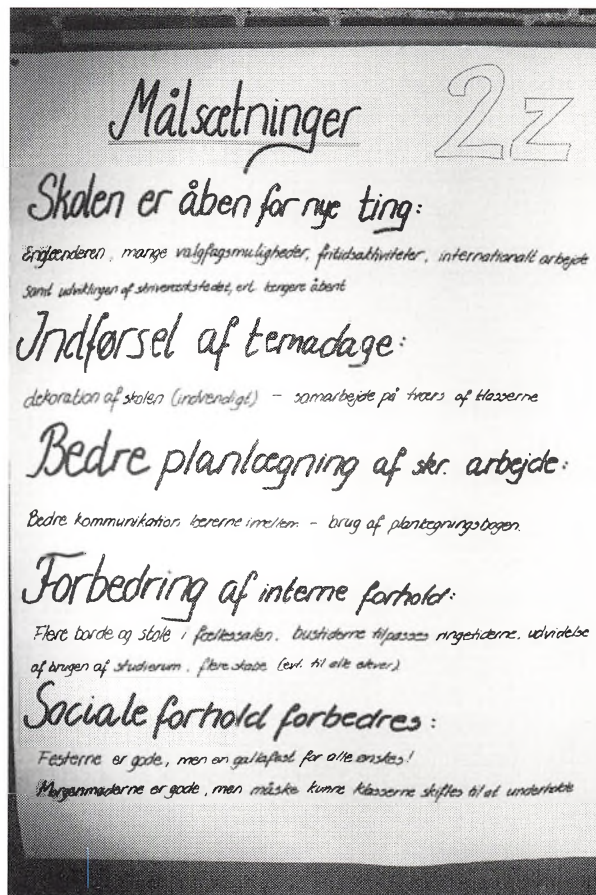 Målsætninger 2z
Skolen er åben for nye ting:
Englænderen, mange valgfagsmuligheder, fritidsaktiviteter, internationalt arbejde
samt udviklingen af skriveværkstedet, evt. længere åbent
Indførsel af temadage:
dekoration af skolen (indvendigt) - samarbejde på tværs af klasserne
Bedre planlægning af skr. arbejde:
Bedre kommunikation lærerne imellem - brug af planlægningsbogen.
Forbedring af interne forhold:
Flere borde og stole i fællessalen, bustiderne tilpasses ringetiderne, udvidelse
af brugen af studierum, flere skabe (evt. til alle elever)
Sociale forhold forbedres:
Festerne er gode, men en gallafest for alle ønskes!
Morgenmøderne er gode, men måske kunne klasserne skiftes til at underholde